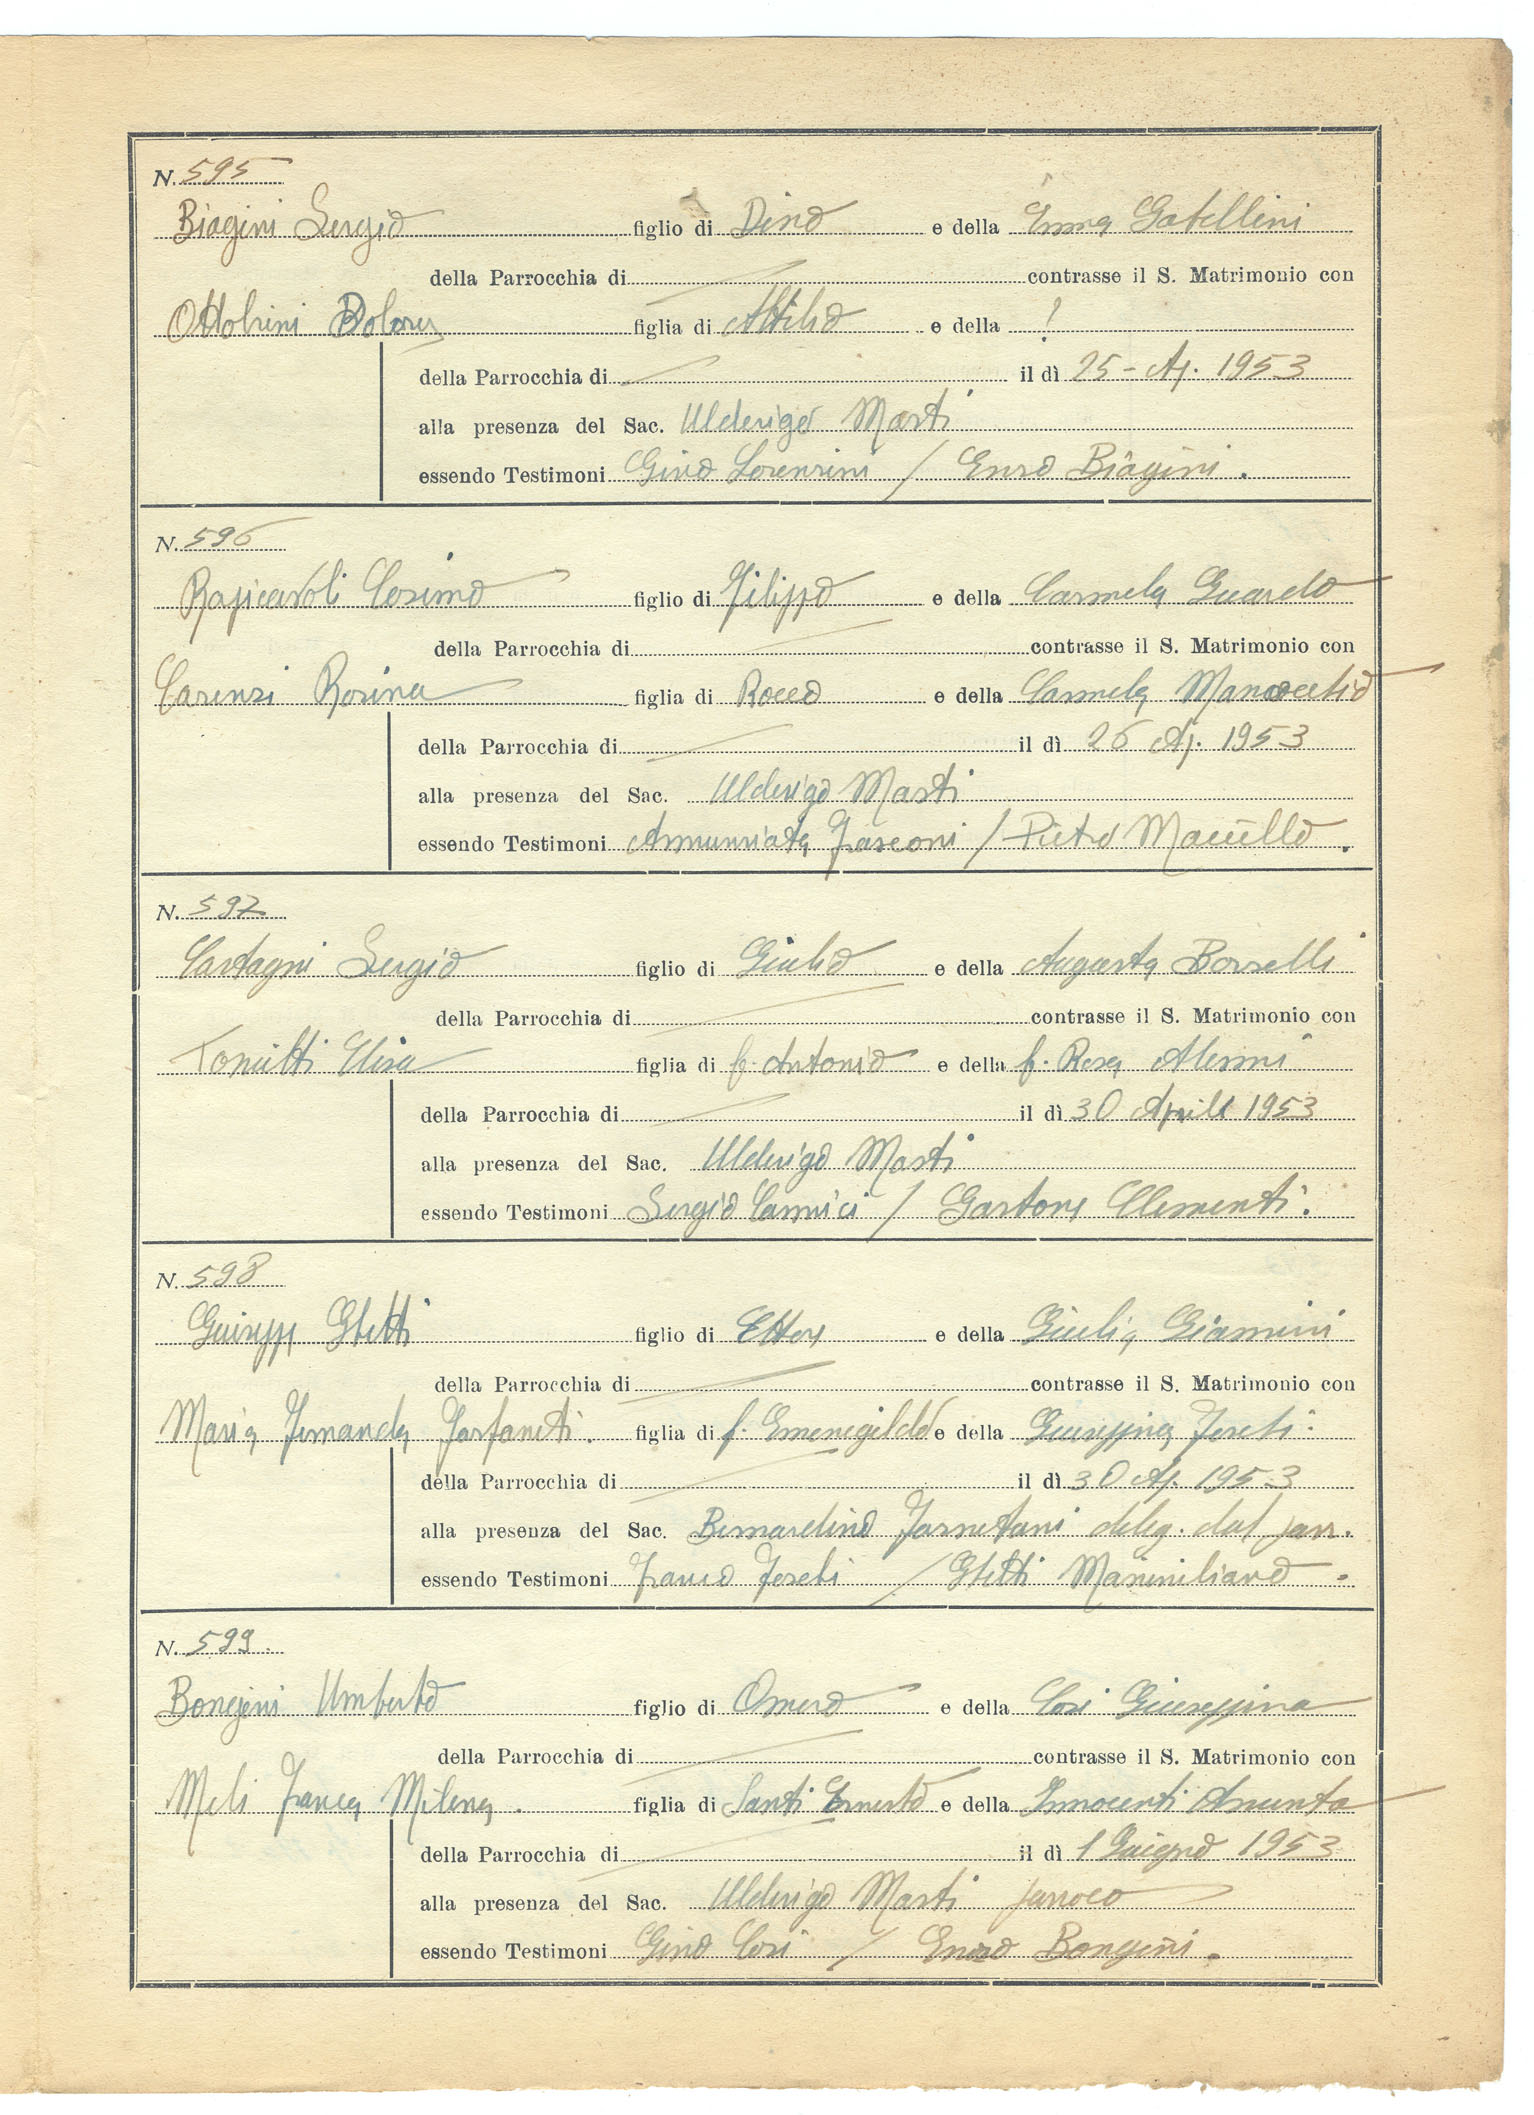 N. 595
Biagini Sergio figlio di Dino e della Emma Gatellini
della Parrocchia di contrasse il S. Matrimonio con
Ottolrini Dolores figlia di Attilio e della !
della Parrocchia di il dì 25 - Ap. 1953
alla presenza del Sac. Ulderigo Masti
essendo Testimoni Gino Lorenzini / Enzo Biagini.
N. 596
Rapiccavoli Cosimo figlio di Filippo e della Carmela Guardo
della Parrocchia di contrasse il S. Matrimonio con
Carenzi Rosina figlia di Rocco e della Carmela Manocchio
della Parrocchia di il dì 26 Ap. 1953
alla presenza del Sac. Ulderigo Masti
essendo Testimoni Annunziata Frasconi / Pietro
N. 597
Castagni Sergio figlio di Giulio e della Augusta Borselli
della Parrocchia di contrasse il S. Matrimonio con
Elisa figlia di f. Antonio e della f. Rosa
della Parrocchia di il dì 30 Aprile 1953
alla presenza del Sac. Ulderigo Masti
essendo Testimoni Sergio Cannici / Gastone Clementi.
N. 598
Guiseppe Ghetti figlio di Ettore e della Giulia Giannini
della Parrocchia di contrasse il S. Matrimonio con
Maria Fernanda Farfaneti. figlia di f. Emenegildo e della Giuseppina Foschi.
della Parrocchia di il dì 30 Ap. 1953
alla presenza del Sac. Bernardino Farnetani deleg. dal parr.
essendo Testimoni Franco Foschi / Ghetti Massimiliano
N. 599.
Bongini Umberto figlio di Omero e della Cosi Giuseppina
della Parrocchia di contrasse il S. Matrimonio con
Meli Franca Milena. figlia di Santi Ernesto e della Innocenti Assunta
della Parrocchia di il dì 1 Guigno 1953
alla presenza del Sac. Ulderigo Masti parroco
essendo Testimoni Gino Cosi / Enzo Bongini.